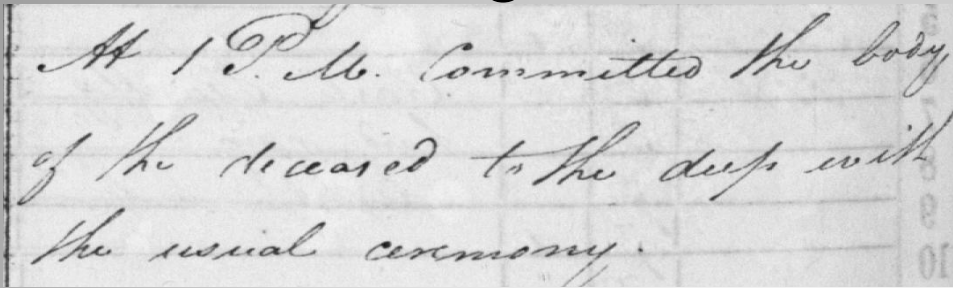 At 1 P.M. Committed the body
of the deceased to the deep with
the usual ceremony.